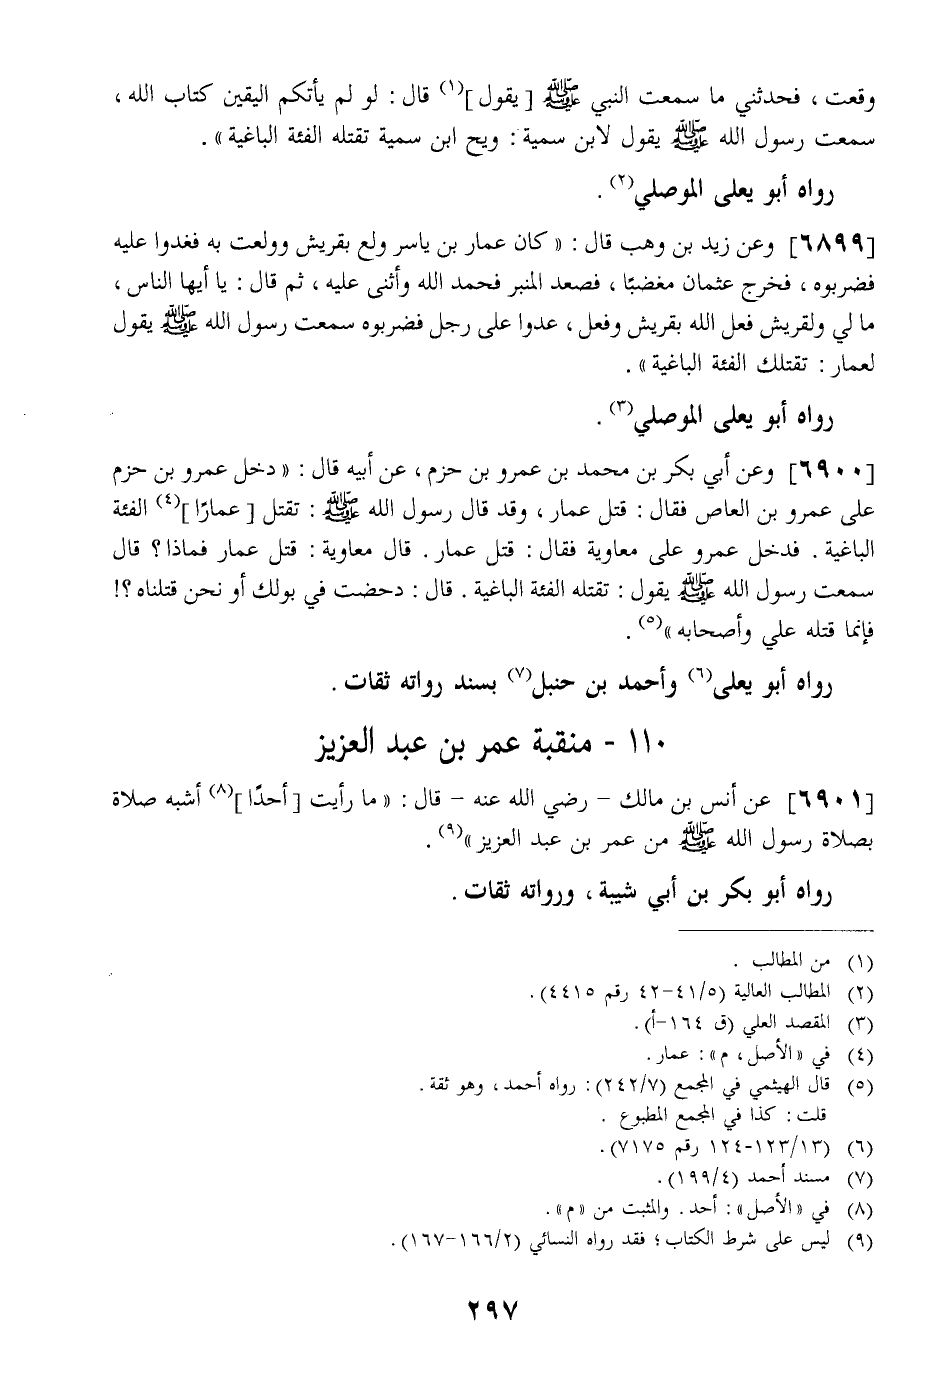 وقعت ، فحدثني ما سمعت النبي ﷺ [ يقول ](١) قال : لو لم يأتكم اليقين كتاب الله ،
سمعت رسول الله ﷺ يقول لابن سمية : ويح ابن سمية تقتله الفئة الباغية » .
رواه أبو يعلى الموصلي(٢) .
[٦٨٩٩] وعن زيد بن وهب قال : « كان عمار بن ياسر ولع بقريش وولعت به فغدوا عليه
فضربوه ، فخرج عثمان مغضبًا ، فصعد المنبر فحمد الله وأثنى عليه ، ثم قال : يا أيها الناس ،
ما لي ولقريش فعل الله بقريش وفعل ، عدوا على رجل فضربوه سمعت رسول الله ﷺ يقول
لعمار : تقتلك الفئة الباغية » .
رواه أبو يعلى الموصلي(٣) .
[٦٩٠٠] وعن أبي بكر بن محمد بن عمرو بن حزم ، عن أبيه قال : « دخل عمرو بن حزم
على عمرو بن العاص فقال : قتل عمار ، وقد قال رسول الله ﷺ : تقتل [ عمارًا ](٤) الفئة
الباغية . فدخل عمرو على معاوية فقال : قتل عمار . قال معاوية : قتل عمار فماذا ؟ قال
سمعت رسول الله ﷺ يقول : تقتله الفئة الباغية . قال : دحضت في بولك أو نحن قتلناه ؟!
فإنما قتله علي وأصحابه »(٥) .
رواه أبو يعلى(٦) وأحمد بن حنبل(٧) بسند رواته ثقات .
١١٠ - منقبة عمر بن عبد العزيز
[٦٩٠١] عن أنس بن مالك – رضي الله عنه – قال : « ما رأيت [ أحدًا ](٨) أشبه صلاة
بصلاة رسول الله ﷺ من عمر بن عبد العزيز »(٩) .
رواه أبو بكر بن أبي شيبة ، ورواته ثقات .
(١) من المطالب .
(٢) المطالب العالية (٤١/٥-٤٢ رقم ٤٤١٥) .
(٣) المقصد العلي (ق ١٦٤-أ) .
(٤) في «الأصل ، م» : عمار .
(٥) قال الهيثمي في المجمع (٢٤٢/٧) : رواه أحمد ، وهو ثقة .
قلت : كذا في المجمع المطبوع .
(٦) (١٢٣/١٣-١٢٤ رقم ٧١٧٥) .
(٧) مسند أحمد (١٩٩/٤) .
(٨) في «الأصل» : أحد . والمثبت من «م» .
(٩) ليس على شرط الكتاب ؛ فقد رواه النسائي (١٦٦/٢-١٦٧) .
٢٩٧